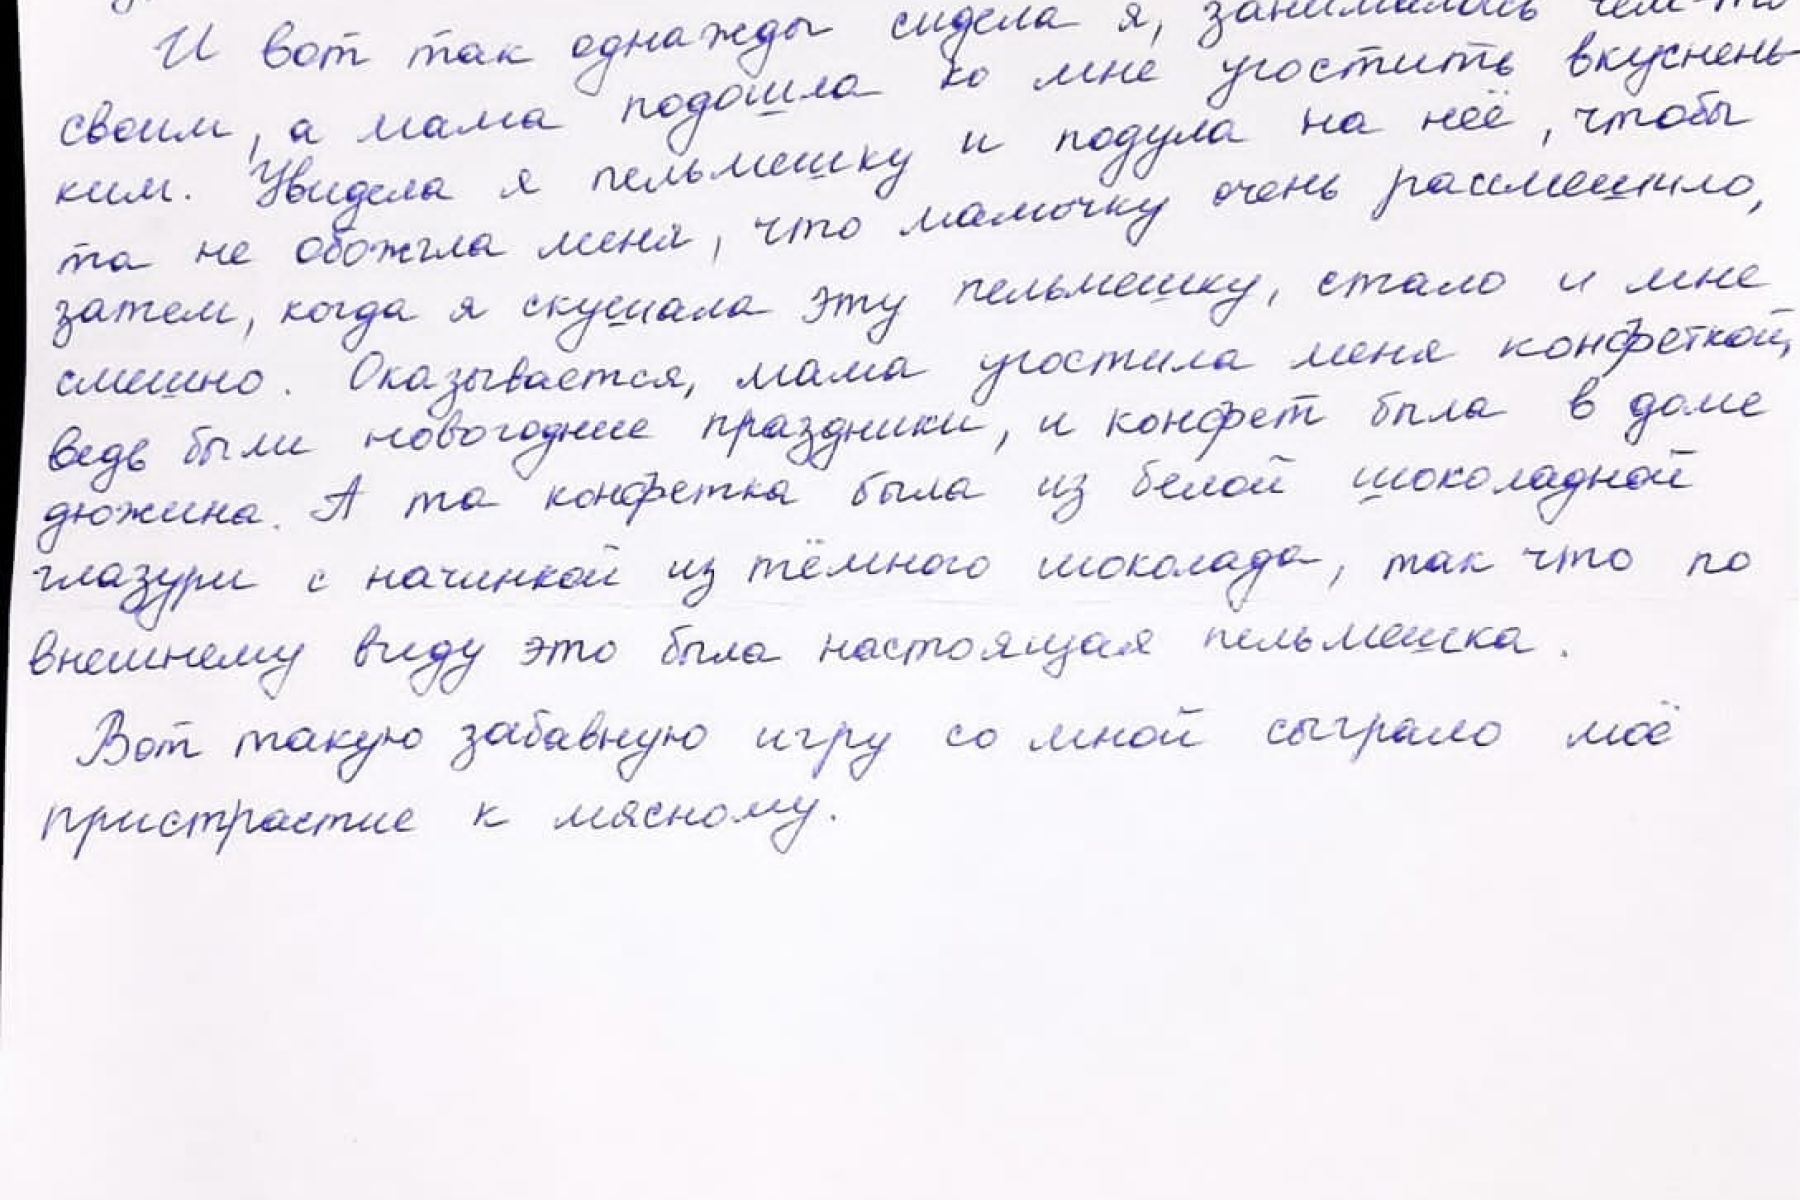 И вот так однажды сидела я, занималась чем-то
своим, а мама подошла ко мне угостить вкуснень-
ким. Увидела я пельмешку и подула на неё, чтобы
та не обожгла меня, что мамочку очень рассмешило,
затем, когда я скушала эту пельмешку, стало и мне
смешно. Оказывается, мама угостила меня конфеткой,
ведь были новогодние праздники, и конфет была в доме
дюжина. А та конфетка была из белой шоколадной
глазури с начинкой из тёмного шоколада, так что по
внешнему виду это была настоящая пельмешка.
Вот такую забавную игру со мной сыграло моё
пристрастие к мясному.